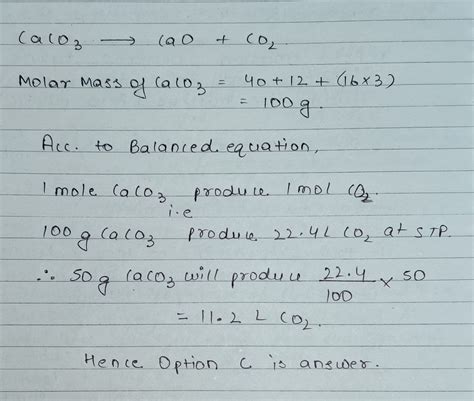 CaCO3 ⟶ CaO + CO2.
Molar Mass of CaCO3 = 40+12+(16×3)
= 100 g.
Acc. to Balanced equation,
1 mole CaCO3 produce 1 mol CO2.
i.e
100 g CaCO3 produce 22.4L CO2 at STP.
∴ 50 g CaCO3 will produce 22.4/100 × 50
= 11.2 L CO2.
Hence Option C is answer.